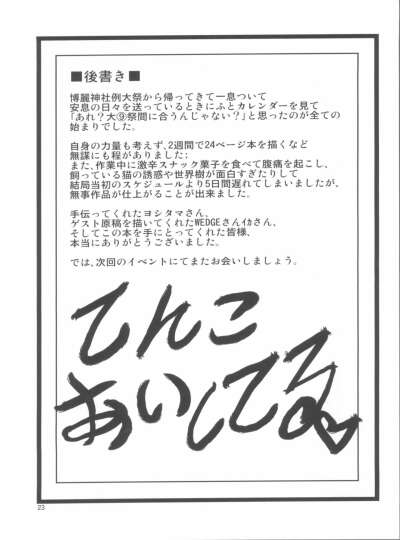 ■後書き■
博麗神社例大祭から帰ってきて一息ついて
安息の日々を送っているときにふとカレンダーを見て
「あれ？大⑨祭間に合うんじゃない？」と思ったのが全ての
始まりでした。
自身の力量も考えず、2週間で24ページ本を描くなど
無謀にも程がありました；
また、作業中に激辛スナック菓子を食べて腹痛を起こし、
飼っている猫の誘惑や世界樹が面白すぎたりして
結局当初のスケジュールより5日間遅れてしまいましたが、
無事作品が仕上がることが出来ました。
手伝ってくれたヨシタマさん、
ゲスト原稿を描いてくれたWEDGEさんイカさん、
そしてこの本を手にとってくれた皆様、
本当にありがとうございました。
では、次回のイベントにてまたお会いしましょう。
てんこ
あいしてる
23